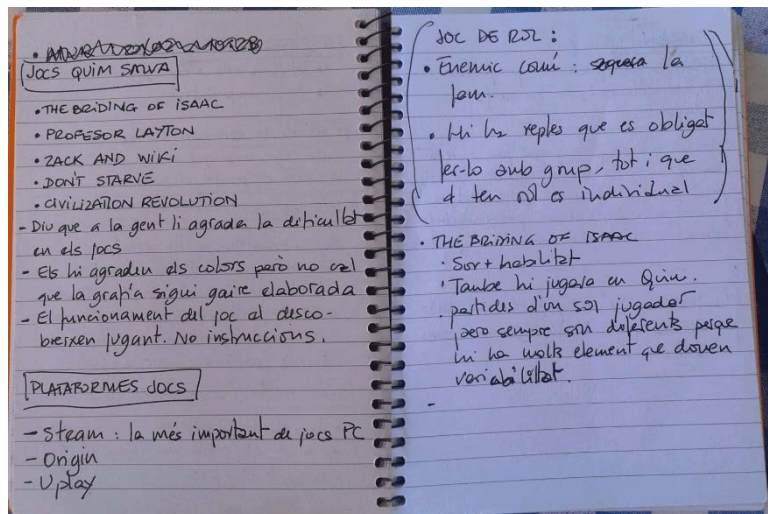 JOCS QUIM SALVA
• THE BRIDING OF ISAAC
• PROFESOR LAYTON
• ZACK AND WIKI
• DON'T STARVE
• CIVILIZATION REVOLUTION
- Diu que a la gent li agrada la dificultat
en els jocs
- Els hi agraden els colors però no cal
que la grafía sigui gaire elaborada
- El funcionament del joc al desco-
breixen jugant. No instruccions.
PLATAFORMES JOCS
- Steam : la més important de jocs PC
- Origin
- Uplay
JOC DE ROL :
• Enemic comú : la
fam.
• Hi ha regles que es obligat
fer-lo amb grup, tot i que
el teu rol es individual
• THE BRIDING OF ISAAC
• Sort + habilitat
• Tambe hi jugava en Quim.
• partides d'un sol jugador
pero sempre son diferents perque
hi ha molts element que donen
variabilitat.
-